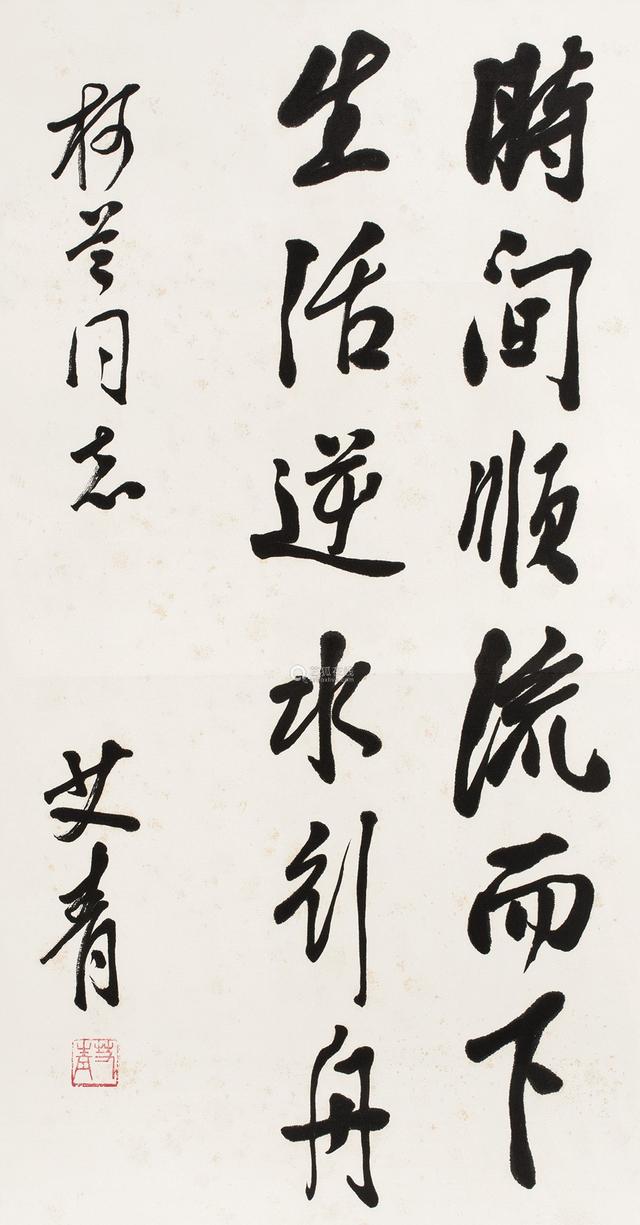 時间顺流而下
生活逆水行舟
柯兰同志 艾青
艾青